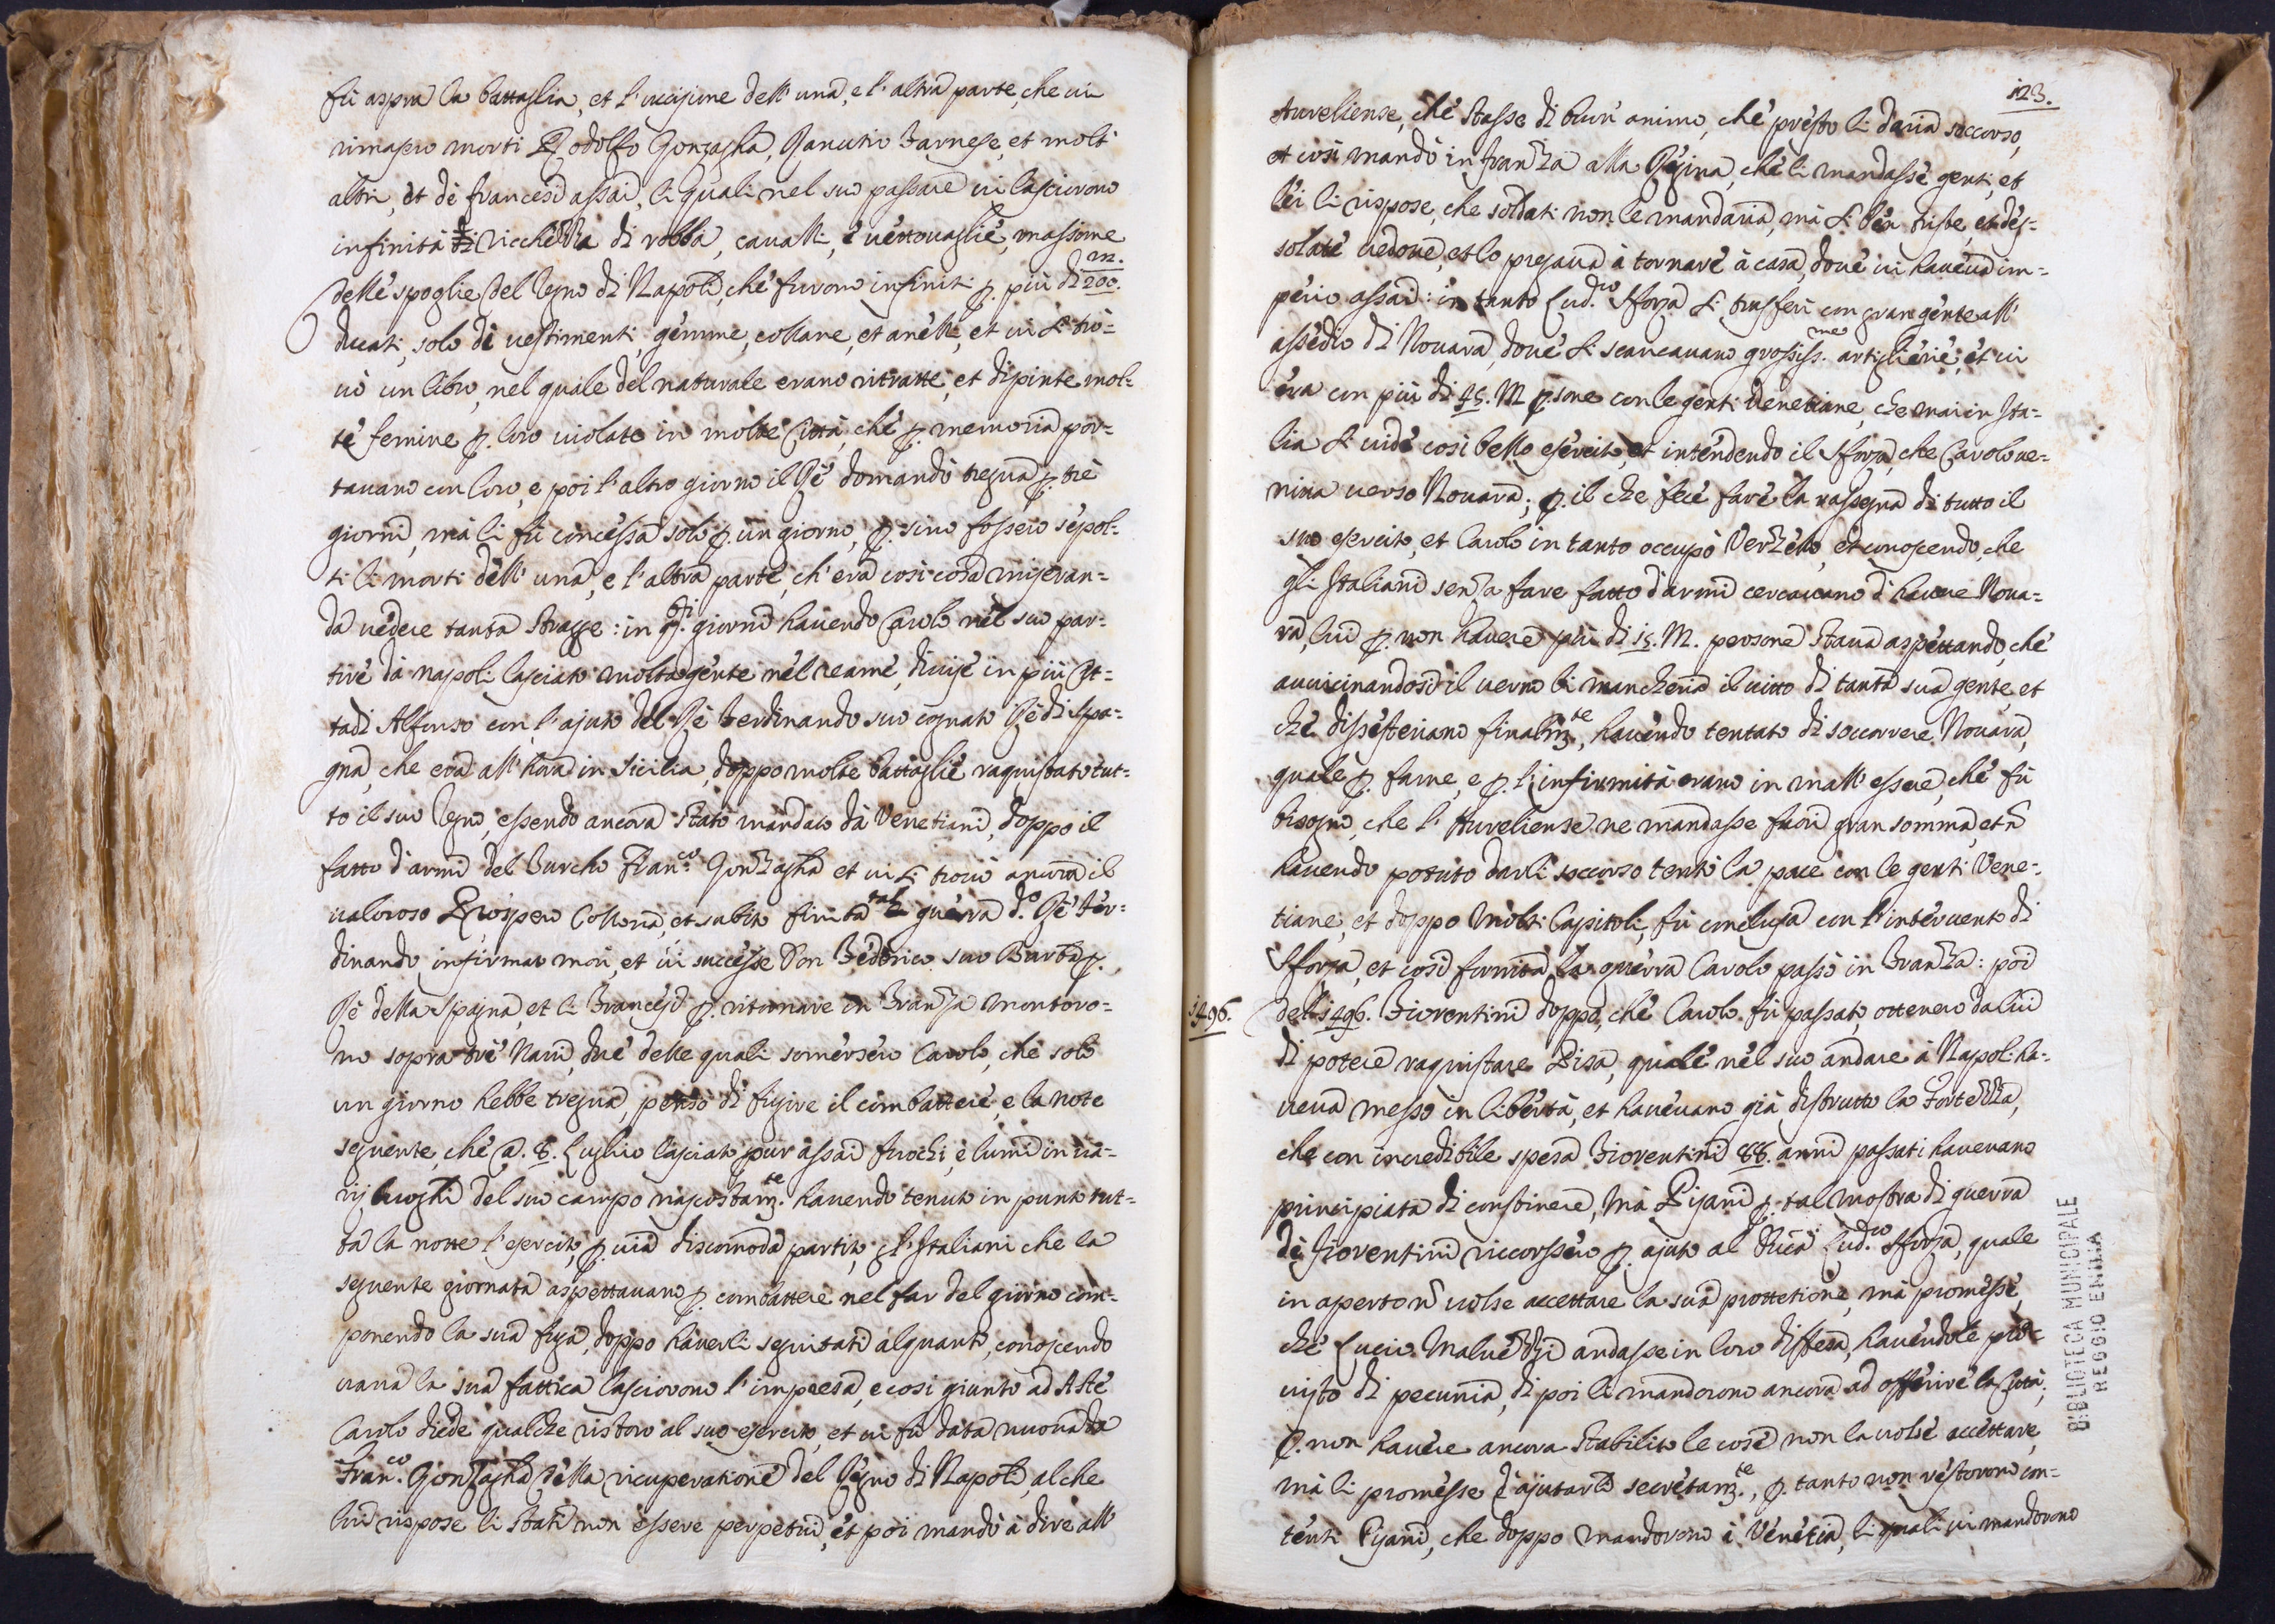 fù aspra la battaglia, et l'uccisione dell'una, e l'altra parte, che ui
rimasero morti Rodolfo Gonzagha, Ranutio Farnese, et molti
altri, et de francesi assai, li quali nel suo passare ui lasciorono
infinità di ricchezza di robba, caualli, e uettouaglie, massime
delle spoglie del Regno di Napoli, che furono infiniti p. più di 200. m.
ducati, solo di uestimenti, gemme, collane, et anelli, et ui si tro=
uò un libro, nel quale del naturale erano ritratte, et dipinte mol=
te femine p. loro uiolate in molte Città, che p. memoria por=
tauano con loro, e poi l'altro giorno il Rè domandò tregua p. trè
giorni, mà li fù concessa solo p. un giorno, p. sino fossero sepol=
ti li morti dell'una, e l'altra parte, ch'era così cosa miseran=
da uedere tanta stragge: in qsti. giorni hauendo Carolo nel suo par=
tire da napoli lasciato molta gente nel reame, diuise in più Cit=
tadi Alfonso con l'ajuto del Rè Ferdinando suo cognato Rè di Spa=
gna, che era all'hora in Sicilia, doppo molte battaglie raquistato tut=
to il suo Regno, essendo ancora stato mandato da Venetiani, doppo il
fatto d'armi del Burcho Fran.co Gonzagha et ui si trouò ancora il
ualoroso Prospero Collona, et subito finita tal guerra d.o Rè Fer=
dinando infirmato morì, et ui successe Don Federico suo Barba p.
Rè della Spagna, et li Francesi p. ritornare in Franza montoro=
no sopra trè Naui, due delle quali somersero Carolo, che solo
un giorno hebbe tregua, pensò di fugire il combattere, e la note
seguente, che a. 8. Luglio lasciato pur assai fuochi, e lumi in ua=
rij luoghi del suo campo nascostam.te hauendo tenuto in punto tut=
ta la notte l'esercito, p. uia discomoda partito, gl'Italiani che la
seguente giornata aspettauano p. combattere nel far del giorno com=
ponendo la sua fuga, doppo hauerli seguitati alquanto, conoscendo
uana la sua fattica lasciorono l'impresa, e così giunto ad Aste
Carolo diede qualche ristoro al suo esercito, et ui fù data nuoua da
Fran.co Gonzagha della ricuperatione del Regno di Napoli, al che
lui rispose li stati non essere perpetui, et poi mandò à dire all'
123.
Aureliense, che stasse di buon'animo, che presto li daria soccorso,
et così mandò in franza alla Regina, che li mandasse genti, et
lei li rispose, che soldati non le mandaria, mà si ben triste, et des=
solate uedoue, et lo pregaua à tornare à casa, doue ui haueua im=
perio assai: in tanto Lud.co Sforza si trasferì con gran gente all'
assedio di Nouara, doue si scaricauano grossiss.me artiglierie, et ui
era con più di 45. M p.sone con le genti Venetiane, che mai in Ita=
lia si uide così bello esercito, et intendendo il Sforza, che Carolo ue=
niua uerso Nouara; p. il che fece fare la rassegna di tutto il
suo esercito, et Carolo in tanto occupò Verzelo, et conoscendo, che
gli Italiani senza fare fatto d'armi cercauano d'hauere Noua=
ra, lui p. non hauere più di 15. M. persone staua aspettando, che
auuicinandosi il uerno li mancheria il uitto di tanta sua gente, et
che dissesteriano finalm.te, hauendo tentato di soccorrere Nouara,
quale p. fame, e p. l'infirmità erano in mall'essere, che fù
bisogno, che l'Aureliense ne mandasse fuori gran somma, et ñ
hauendo potuto darli soccorso tentò la pace con le genti Vene=
tiane, et doppo molti Capitoli, fù conclusa con l'interuento di
Sforza, et così fornita la guerra Carolo passò in Franza: poi
1496. del 1496. Fiorentini doppo, che Carolo fù passato, ottenero da lui
di potere raquistare Pisa, quale nel suo andare à Napoli ha=
ueua messo in libertà, et haueuano già distrutto la Fortezza,
che con incredibile spesa Fiorentini 88. anni passati haueuano
principiata di constinere, mà Pisani p. tal mostra di guerra
de Fiorentini riccorsero p. ajuto al Duca Lud.co Sforza, quale
in aperto ñ uolse accettare la sua prottetione, mà promesse,
che Lucio Maluezzi andasse in loro diffesa, hauendole pro=
uisto di pecunia, di poi li mandorono ancora ad offerire la Città,
p. non hauere ancora stabilito le cose non la uolse accettare,
mà li promesse d'ajutarli secretam.te, p. tanto non restorono con=
tenti Pisani, che doppo mandorono à Venetia, li quali ui mandorono
BIBLIOTECA MUNICIPALE
REGGIO EMILIA